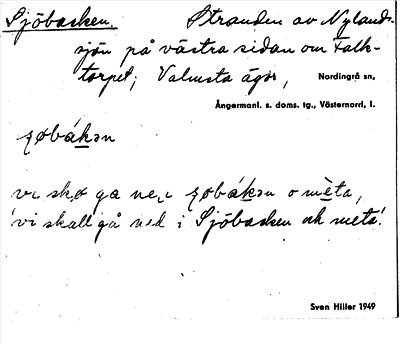 Sjöbacken. Stranden av Nylands-
sjön på västra sidan om Falk-
torpet; Valmsta ägor, Nordingrå sn,
Ångermanl. s. doms. tg., Västernorrl, l.
ʃøbákən
vɩ skø ga ne, ɩ ʃøbákən o mèta,
'vi skall gå ned i Sjöbacken och meta'.
Sven Hiller 1949